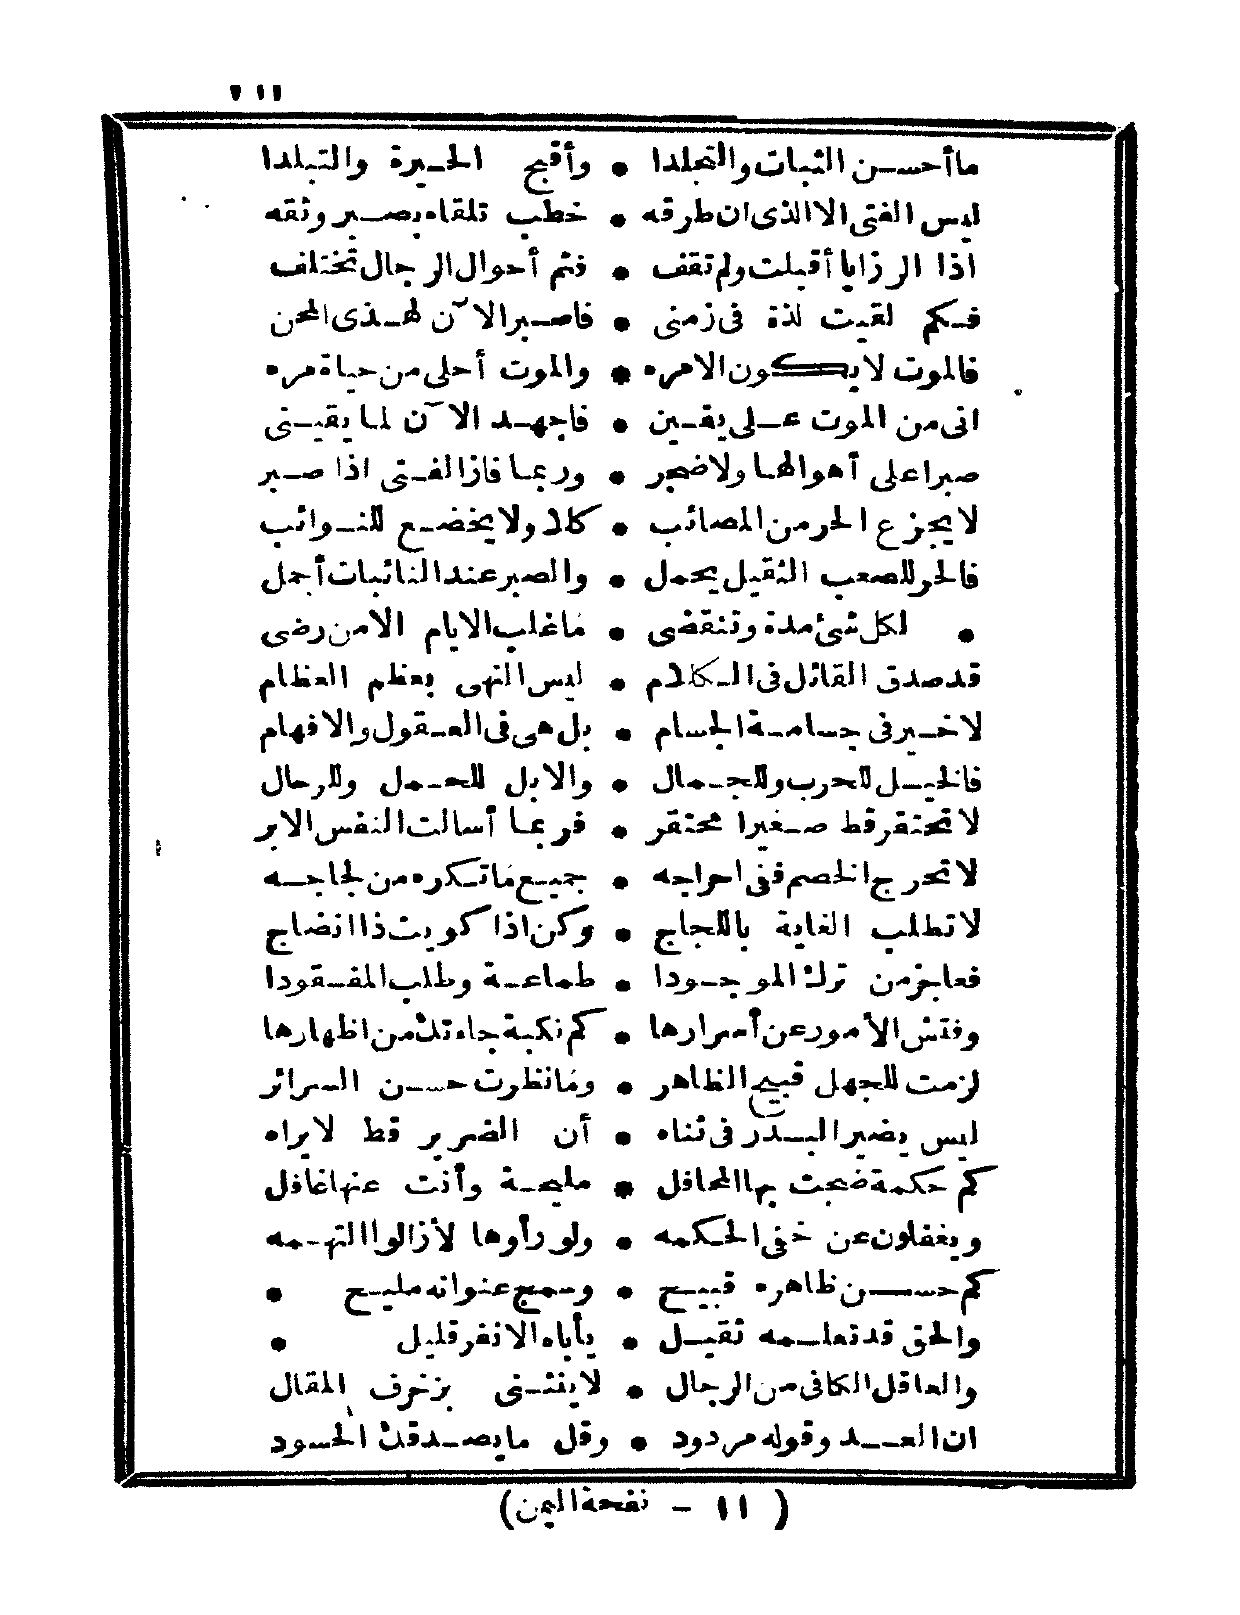 ١٦١
ما أحسن الثبات والتجلدا • وأقبح الحيرة والتبلدا
ليس الفتى الا الذى ان طرقه • خطب تلقاه بصبر وثقه
اذا الرزايا أقبلت ولم تقف • فثم أحوال الرجال تختلف
فكم لقيت لذة فى زمنى • فاصبر الآن لهذى المحن
فالموت لا يكون الا مره • والموت أحلى من حياة مره
انى من الموت على يقين • فاجهد الآن لما يقينى
صبرا على أهوالها ولا ضجر • وربما فاز الفتى اذا صبر
لا يجزع الحر من المصائب • كلا ولا يخضع للنوائب
فالحر للصعب الثقيل يحمل • والصبر عند النائبات أجمل
• لكل شئ مدة وتنقضى • ما غلب الايام الا من رضى
قد صدق القائل فى الكلام • ليس النهى بعظم العظام
لا خير فى جسامة الجسام • بل هى فى العقول والافهام
فالخيل للحرب وللجمال • والابل للحمل وللرحال
لا تحتقر قط صغيرا محتقر • فربما أسالت النفس الابر
لا تحرج الخصم ففى احراجه • جميع ما تكره من لجاجه
لا تطلب الغاية باللجاج • وكن اذا كويت ذا انضاج
فعاجز من ترك الموجودا • طماعة وطلب المفقودا
وفتش الأمور عن أسرارها • كم نكبة جاءتك من اظهارها
لزمت للجهل قبيح الظاهر • وما نظرت حسن السرائر
ليس يضير البدر فى ثناه • أن الضرير قط لا يراه
كم حكمة ضجت بها المحافل • مليحة وأنت عنها غافل
ويغفلون عن خفى الحكمه • ولو رأوها لأزالوا التهمه
كم حسن ظاهره قبيح • وسمج عنوانه مليح •
والحق قد تعلمه ثقيل • يأباه الا نفر قليل •
والعاقل الكافى من الرجال • لا ينثنى بزخرف المقال
ان العد وقوله مردود • وقل ما يصدقك الحسود
( ١١ - نفحة اليمن)